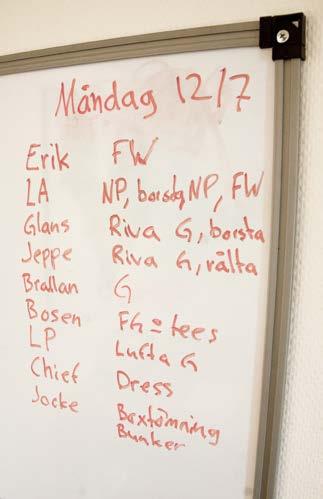 Måndag 12/7
Erik FW
LA NP, borsta NP, FW
Glans Riva G, borsta
Jeppe Riva G, välta
Brallan G
Bosen FG = tees
LP Lufta G
Chief Dress
Jocke Boxtömning
Bunker